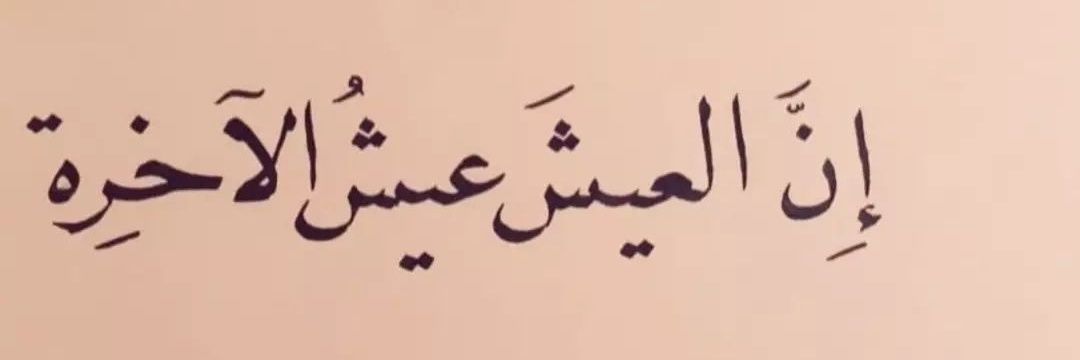 إِنَّ العيشَ عيشُ الآخرِة